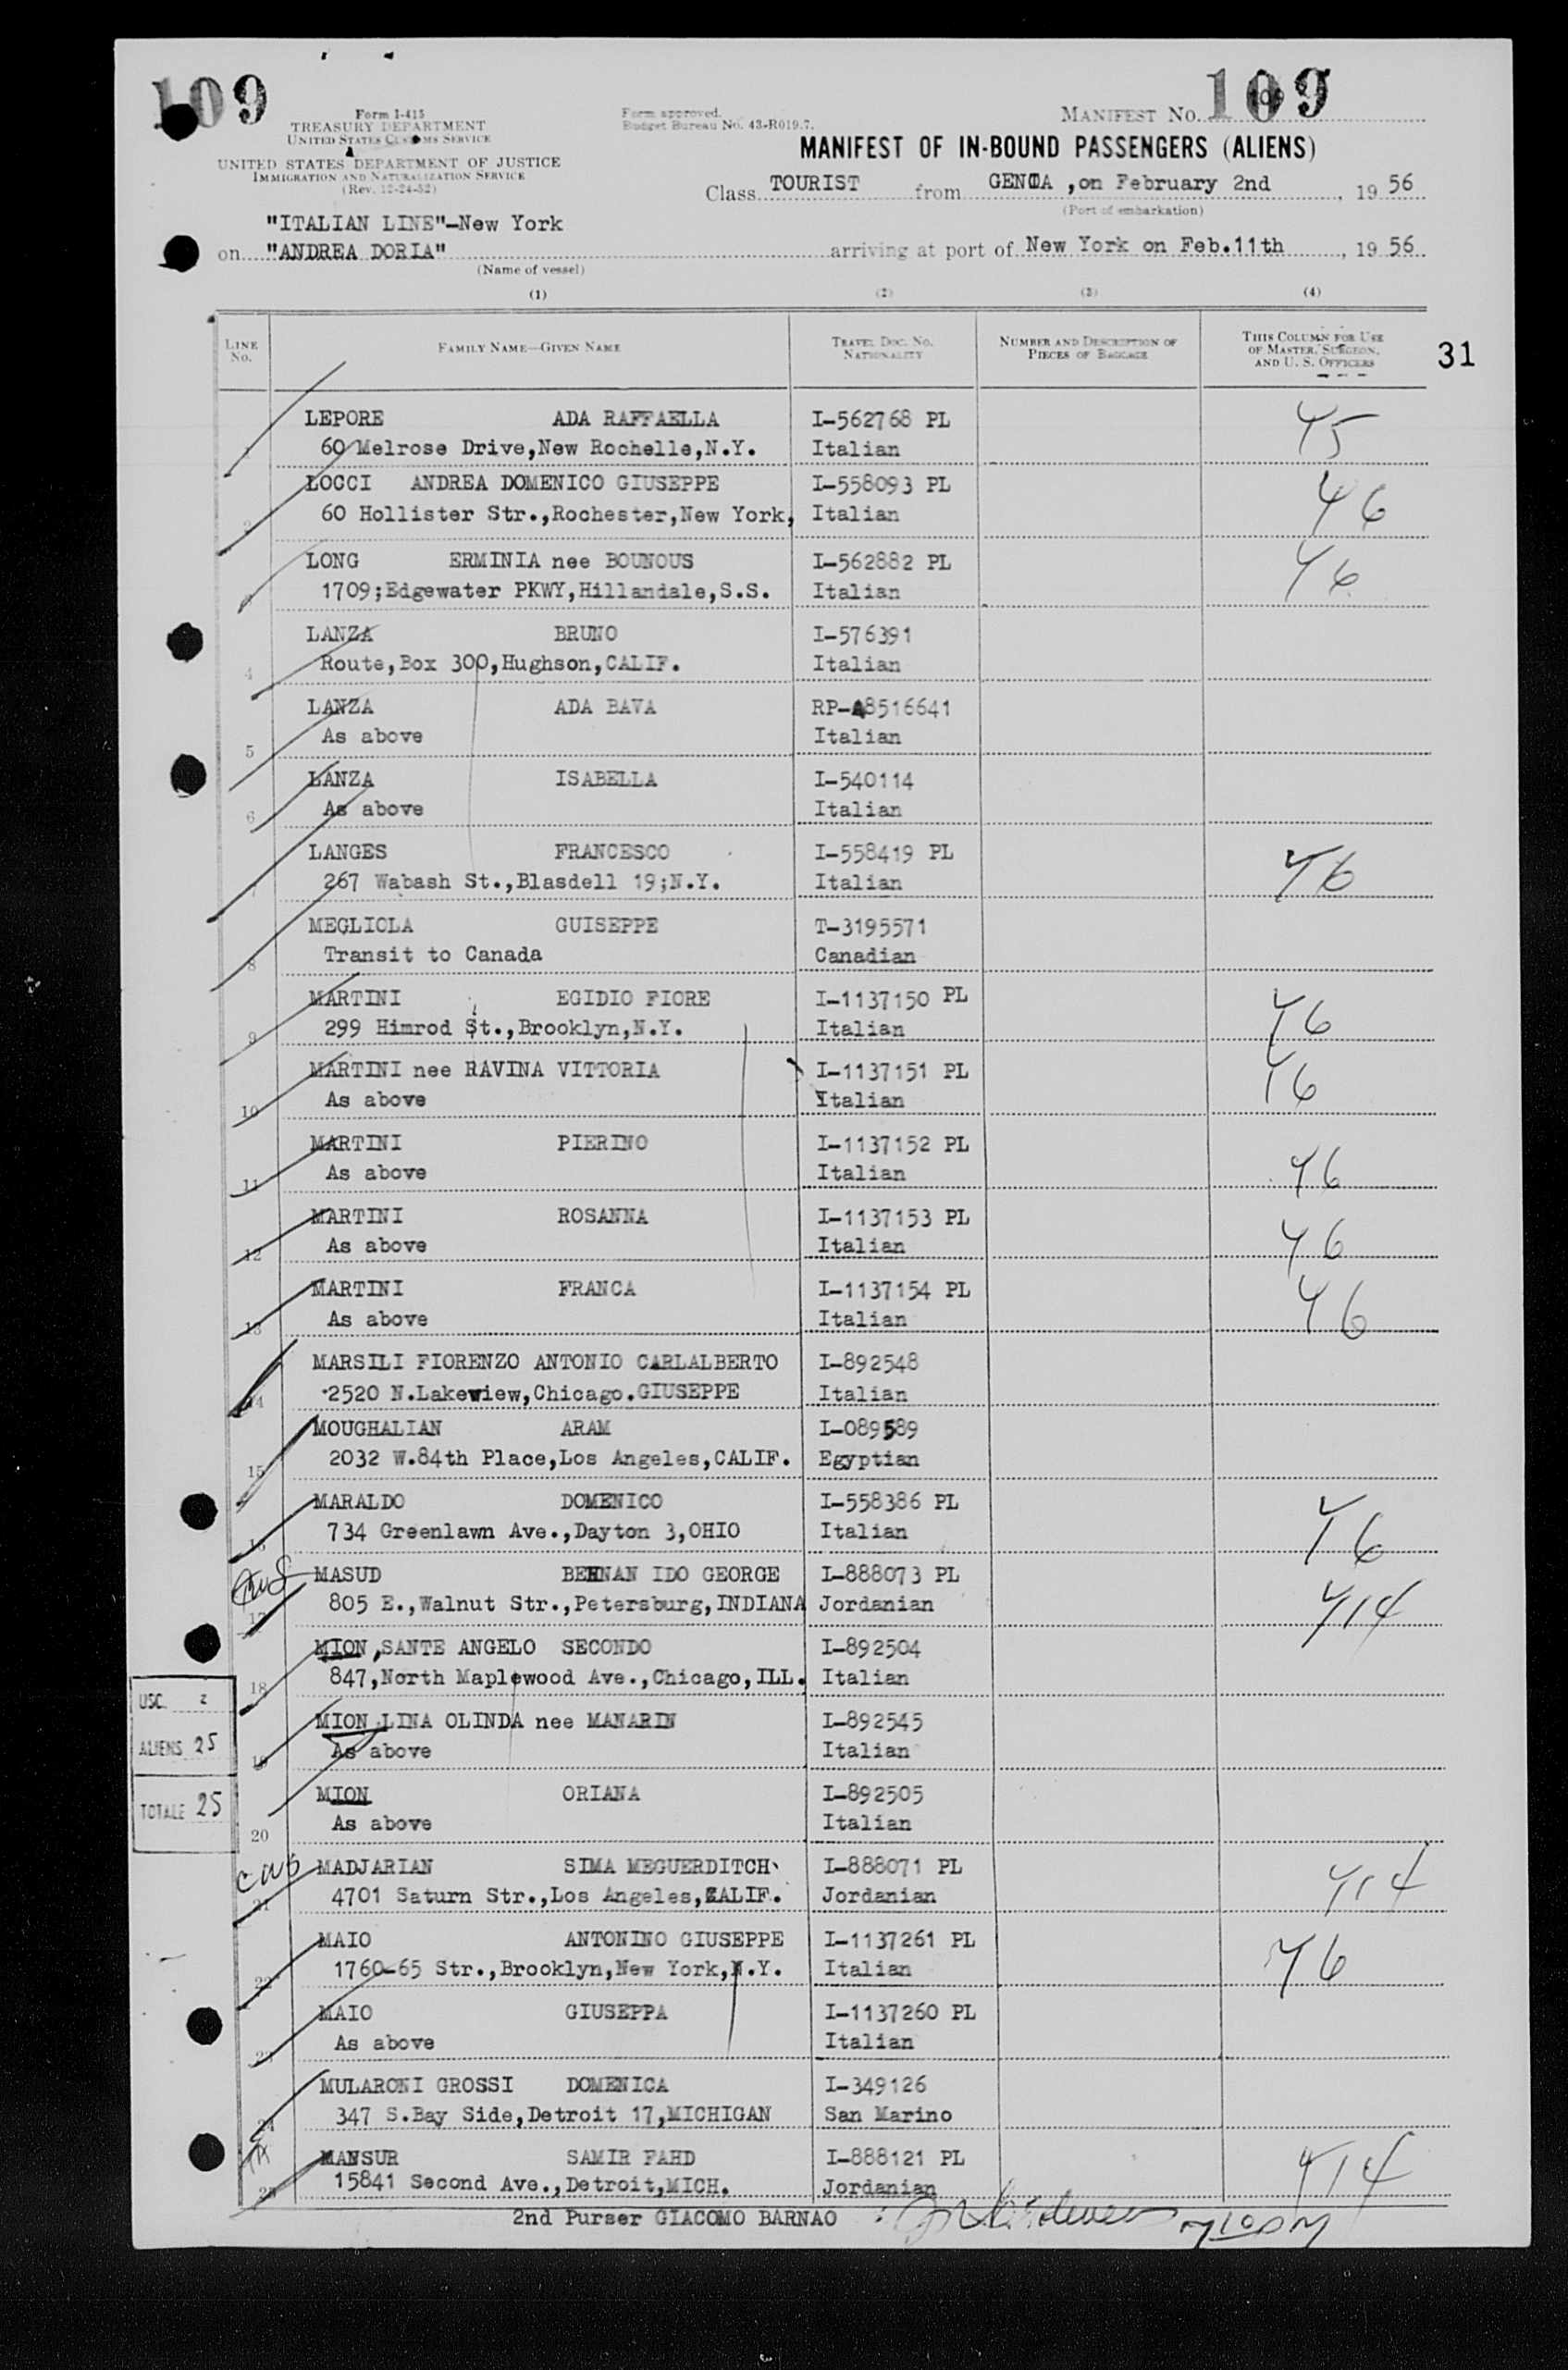 109
Form I-415
TREASURY DEPARTMENT
UNITED STATES CUSTOMS SERVICE
UNITED STATES DEPARTMENT OF JUSTICE
IMMIGRATION AND NATURALIZATION SERVICE
(Rev. 12-24-52)
Form approved.
Budget Bureau No. 43-R019.7.
MANIFEST No. 109
MANIFEST OF IN-BOUND PASSENGERS (ALIENS)
Class TOURIST from GENOA ,on February 2nd, 19 56
(Port of embarkation)
"ITALIAN LINE"-New York
on "ANDREA DORIA" arriving at port of New York on Feb.11th, 19 56
(Name of vessel)
(1) (2) (3) (4)
LINE No. FAMILY NAME—GIVEN NAME TRAVEL DOC. No. NATIONALITY NUMBER AND DESCRIPTION OF PIECES OF BAGGAGE THIS COLUMN FOR USE OF MASTER, SURGEON, AND U. S. OFFICERS
31
1 LEPORE ADA RAFFAELLA I-562768 PL 45
60 Melrose Drive,New Rochelle,N.Y. Italian
2 LOCCI ANDREA DOMENICO GIUSEPPE I-558093 PL 46
60 Hollister Str.,Rochester,New York, Italian
3 LONG ERMINIA nee BOUNOUS I-562882 PL 46
1709;Edgewater PKWY,Hillandale,S.S. Italian
4 LANZA BRUNO I-576391
Route,Box 300,Hughson,CALIF. Italian
5 LANZA ADA BAVA RP-A8516641
As above Italian
6 LANZA ISABELLA I-540114
As above Italian
7 LANGES FRANCESCO I-558419 PL 46
267 Wabash St.,Blasdell 19;N.Y. Italian
8 MEGLIOLA GUISEPPE T-3195571
Transit to Canada Canadian
9 MARTINI EGIDIO FIORE I-1137150 PL 46
299 Himrod St.,Brooklyn,N.Y. Italian
10 MARTINI nee RAVINA VITTORIA I-1137151 PL 46
As above Italian
11 MARTINI PIERINO I-1137152 PL 46
As above Italian
12 MARTINI ROSANNA I-1137153 PL 46
As above Italian
13 MARTINI FRANCA I-1137154 PL 46
As above Italian
14 MARSILI FIORENZO ANTONIO CARLALBERTO I-892548
2520 N.Lakewiew,Chicago.GIUSEPPE Italian
15 MOUGHALIAN ARAM I-089589
2032 W.84th Place,Los Angeles,CALIF. Egyptian
16 MARALDO DOMENICO I-558386 PL 46
734 Greenlawn Ave.,Dayton 3,OHIO Italian
17 MASUD BEHNAN IDO GEORGE I-888073 PL 414
805 E.,Walnut Str.,Petersburg,INDIANA Jordanian
18 MION,SANTE ANGELO SECONDO I-892504
847,North Maplewood Ave.,Chicago,ILL. Italian
19 MION LINA OLINDA nee MANARIN I-892545
As above Italian
20 MION ORIANA I-892505
As above Italian
USC. 2
ALIENS 25
TOTALE 25
21 MADJARIAN SIMA MEGUERDITCH I-888071 PL 414
4701 Saturn Str.,Los Angeles,CALIF. Jordanian
22 MAIO ANTONINO GIUSEPPE I-1137261 PL 46
1760-65 Str.,Brooklyn,New York,N.Y. Italian
23 MAIO GIUSEPPA I-1137260 PL
As above Italian
24 MULARONI GROSSI DOMENICA I-349126
347 S.Bay Side,Detroit 17,MICHIGAN San Marino
25 MANSUR SAMIR FAHD I-888121 PL 414
15841 Second Ave.,Detroit,MICH. Jordanian
2nd Purser GIACOMO BARNAO :